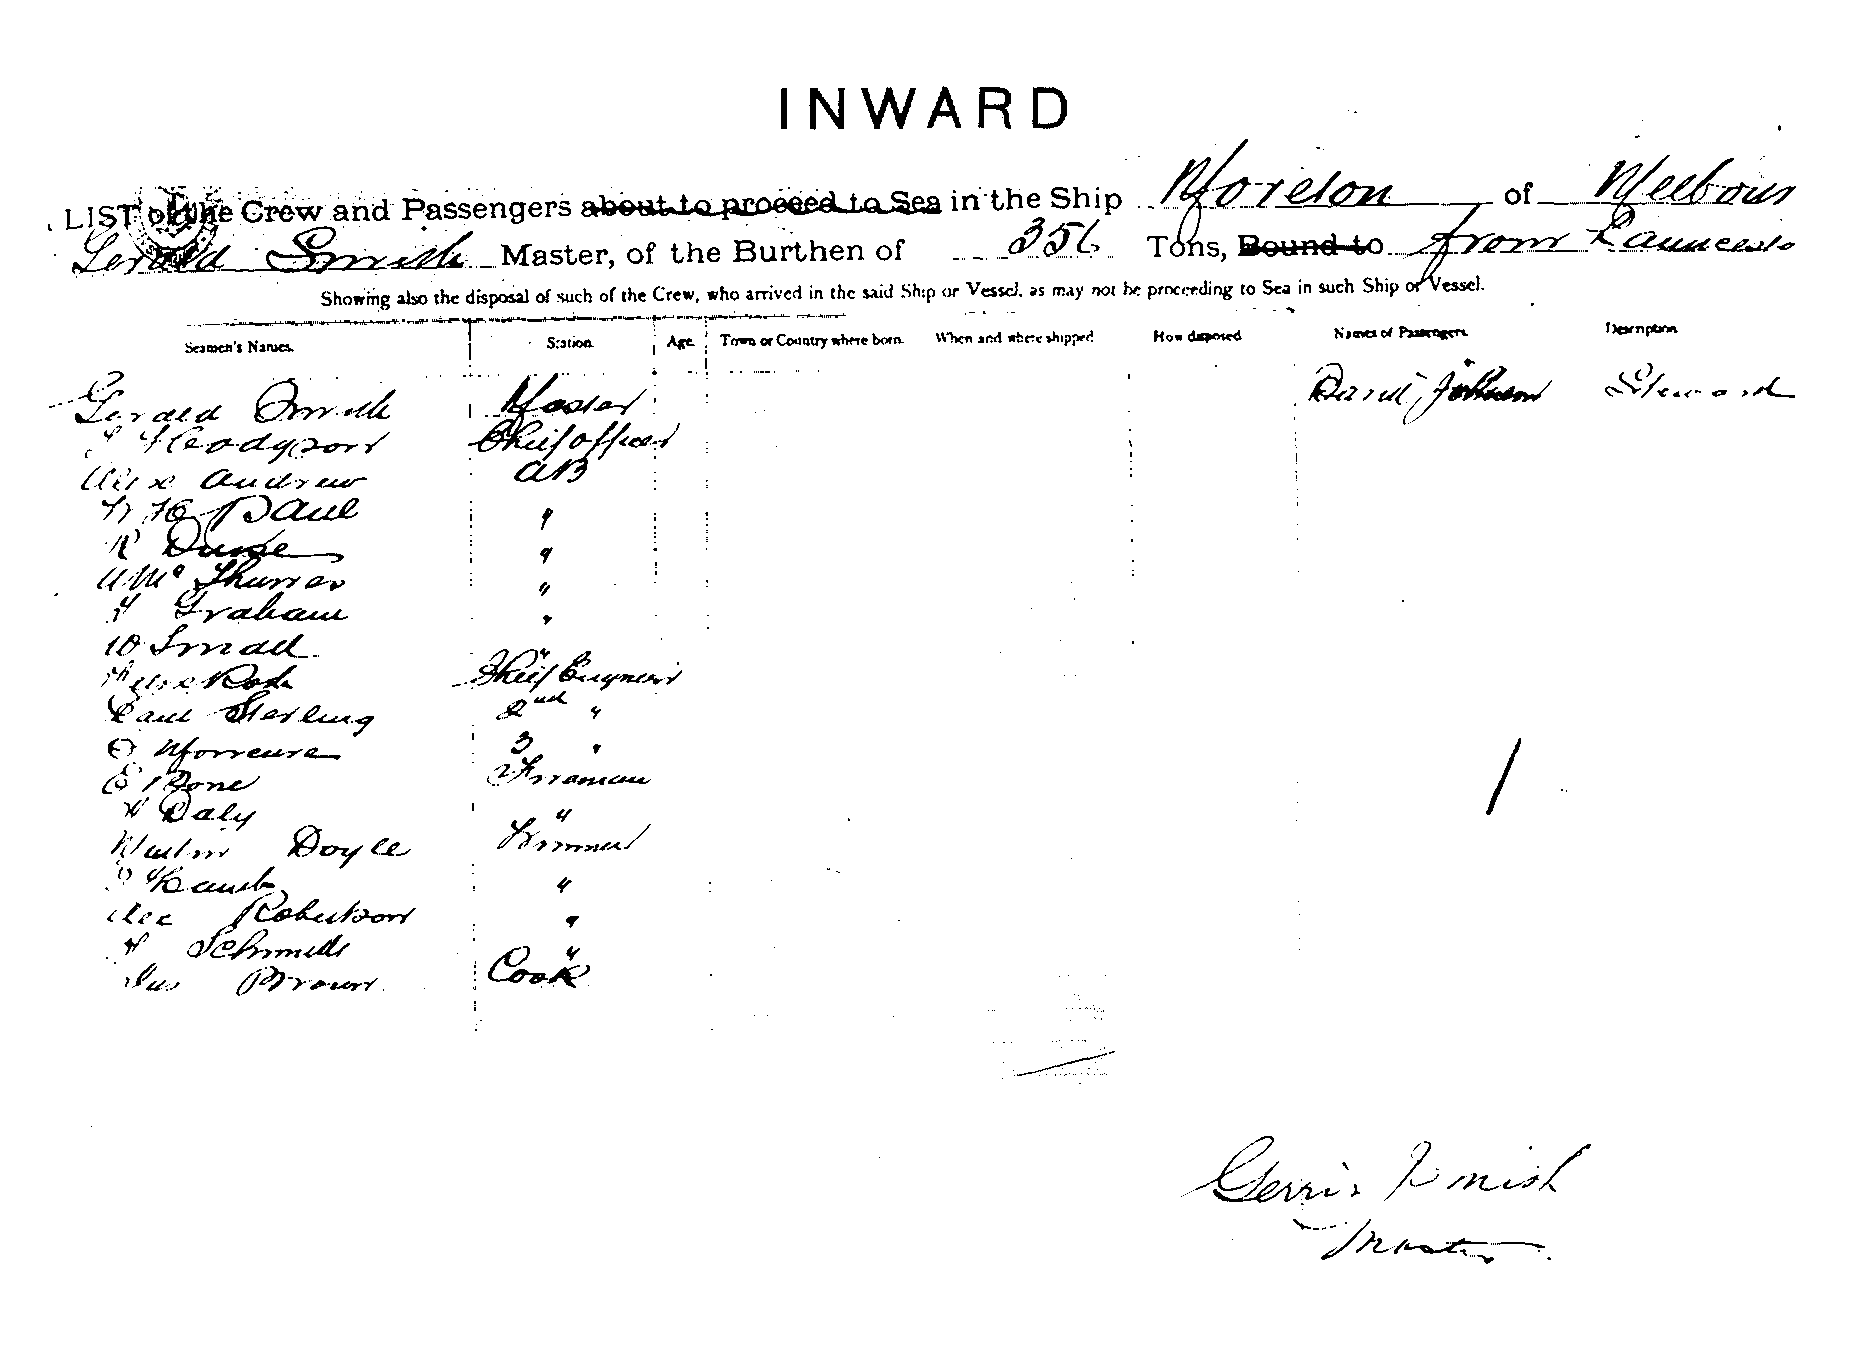 INWARD
LIST of the Crew and Passengers about to proceed to Sea in the Ship Moreton of Melbour
Gerald Smith Master, of the Burthen of 356 Tons, Bound to from Launcesto
Showing also the disposal of such of the Crew, who arrived in the said Ship or Vessel, as may not be proceeding to Sea in such Ship or Vessel.
Seamen's Names. Station. Age. Town or Country where born. When and where shipped How disposed Names of Passengers. Description
Gerald Smith Master David Johnson Steward
Hodgson Chief officer
Alex Andrew AB
Paul "
R "
A Mc "
H Graham "
W Small "
Chief Engineer
Paul Sterling 2nd "
O 3 "
E Bone Fireman
H Daly "
Martin Doyle Trimmer
"
Alec Robertson "
H Schmidt "
Jas Brown Cook
Smith
Master